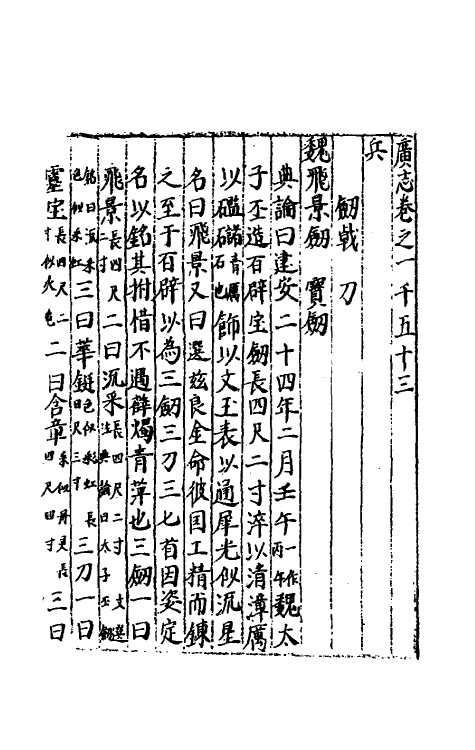 廣志卷之一千五十三
兵
劒戟 刀
魏飛景劒 寶劒
典論曰建安二十四年二月壬午一作丙午魏太
子丕造百辟宝劒長四尺二寸淬以清漳厲
以礛䃴青厲石也飾以文玉表以通犀光似流星
名曰飛景又曰選兹良金命彼国工精而鍊
之至于百辟以為三劒三刀三匕首因姿定
名以銘其拊惜不遇薛燭青萍也三劒一曰
飛景長四尺二寸二曰流采長四尺二寸 文選注典論曰太子丕劒
銘曰流采色似采虹三曰華鋌色似彩虹長四尺三寸三刀一曰
靈宝長四尺二寸似火色二曰含章采似丹灵長四尺四寸三曰